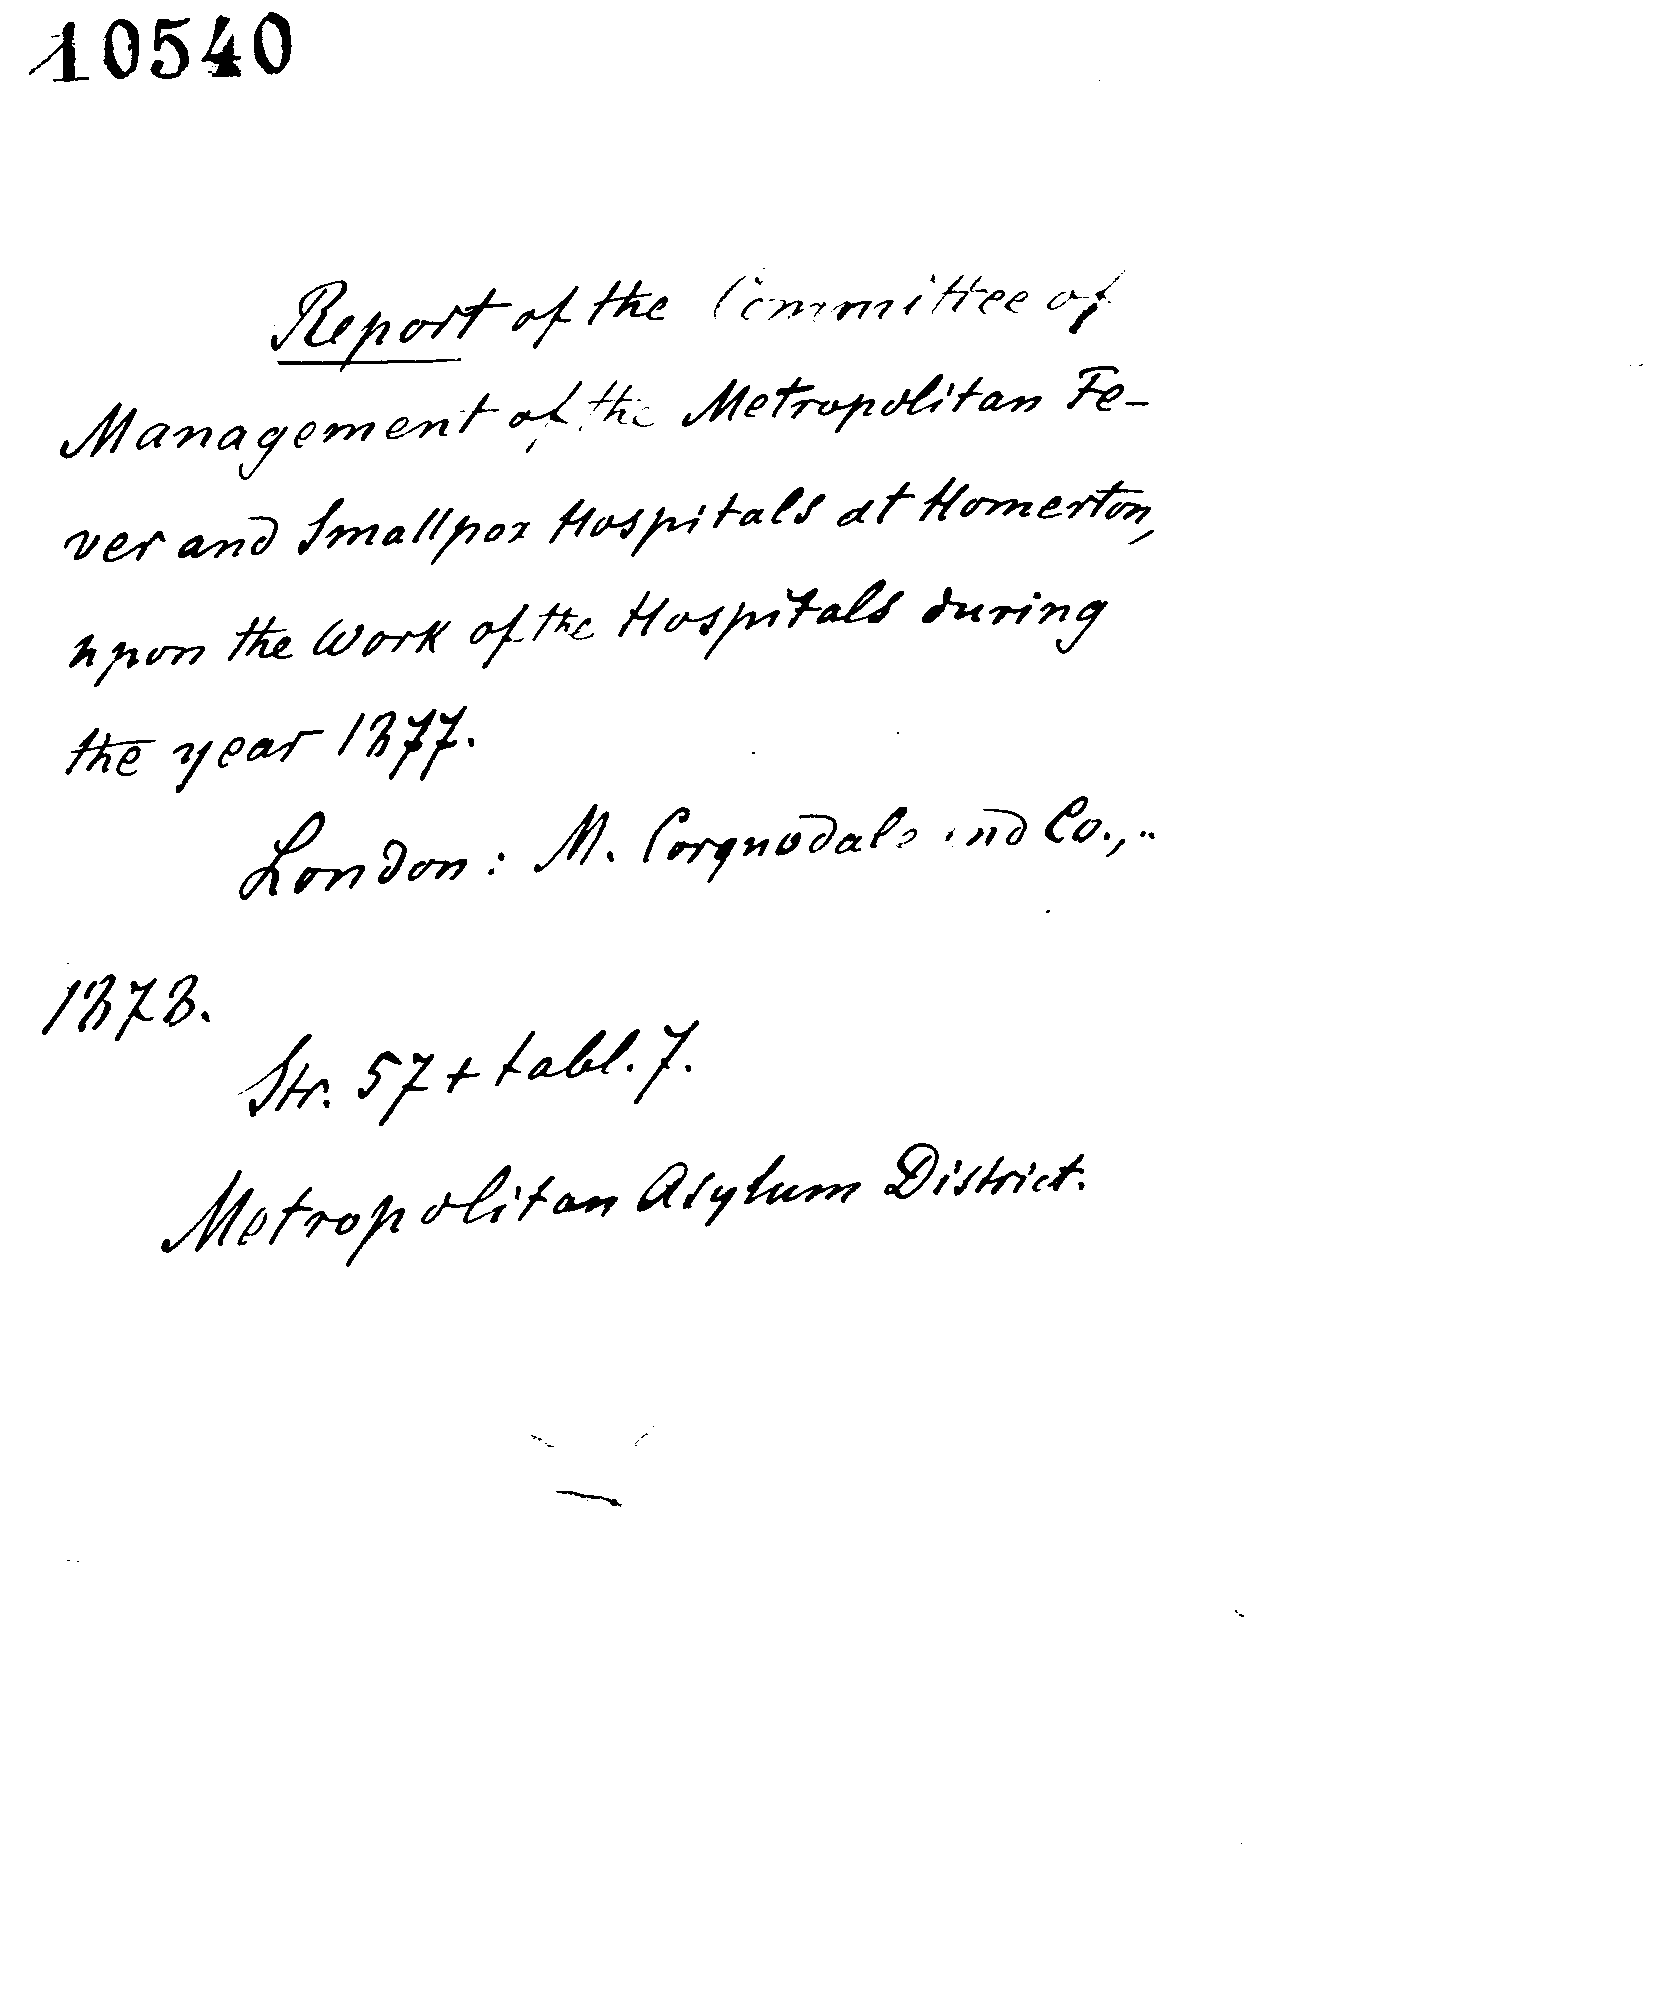 10540
Report of the Committee of
Management of the Metropolitan Fe-
ver and Smallpox Hospitals at Homerton,
upon the Work of the Hospitals during
the year 1877.
London: M. Corquodale and Co.,..
1878.
Str. 57 + tabl. 7.
Metropolitan Asylum District.